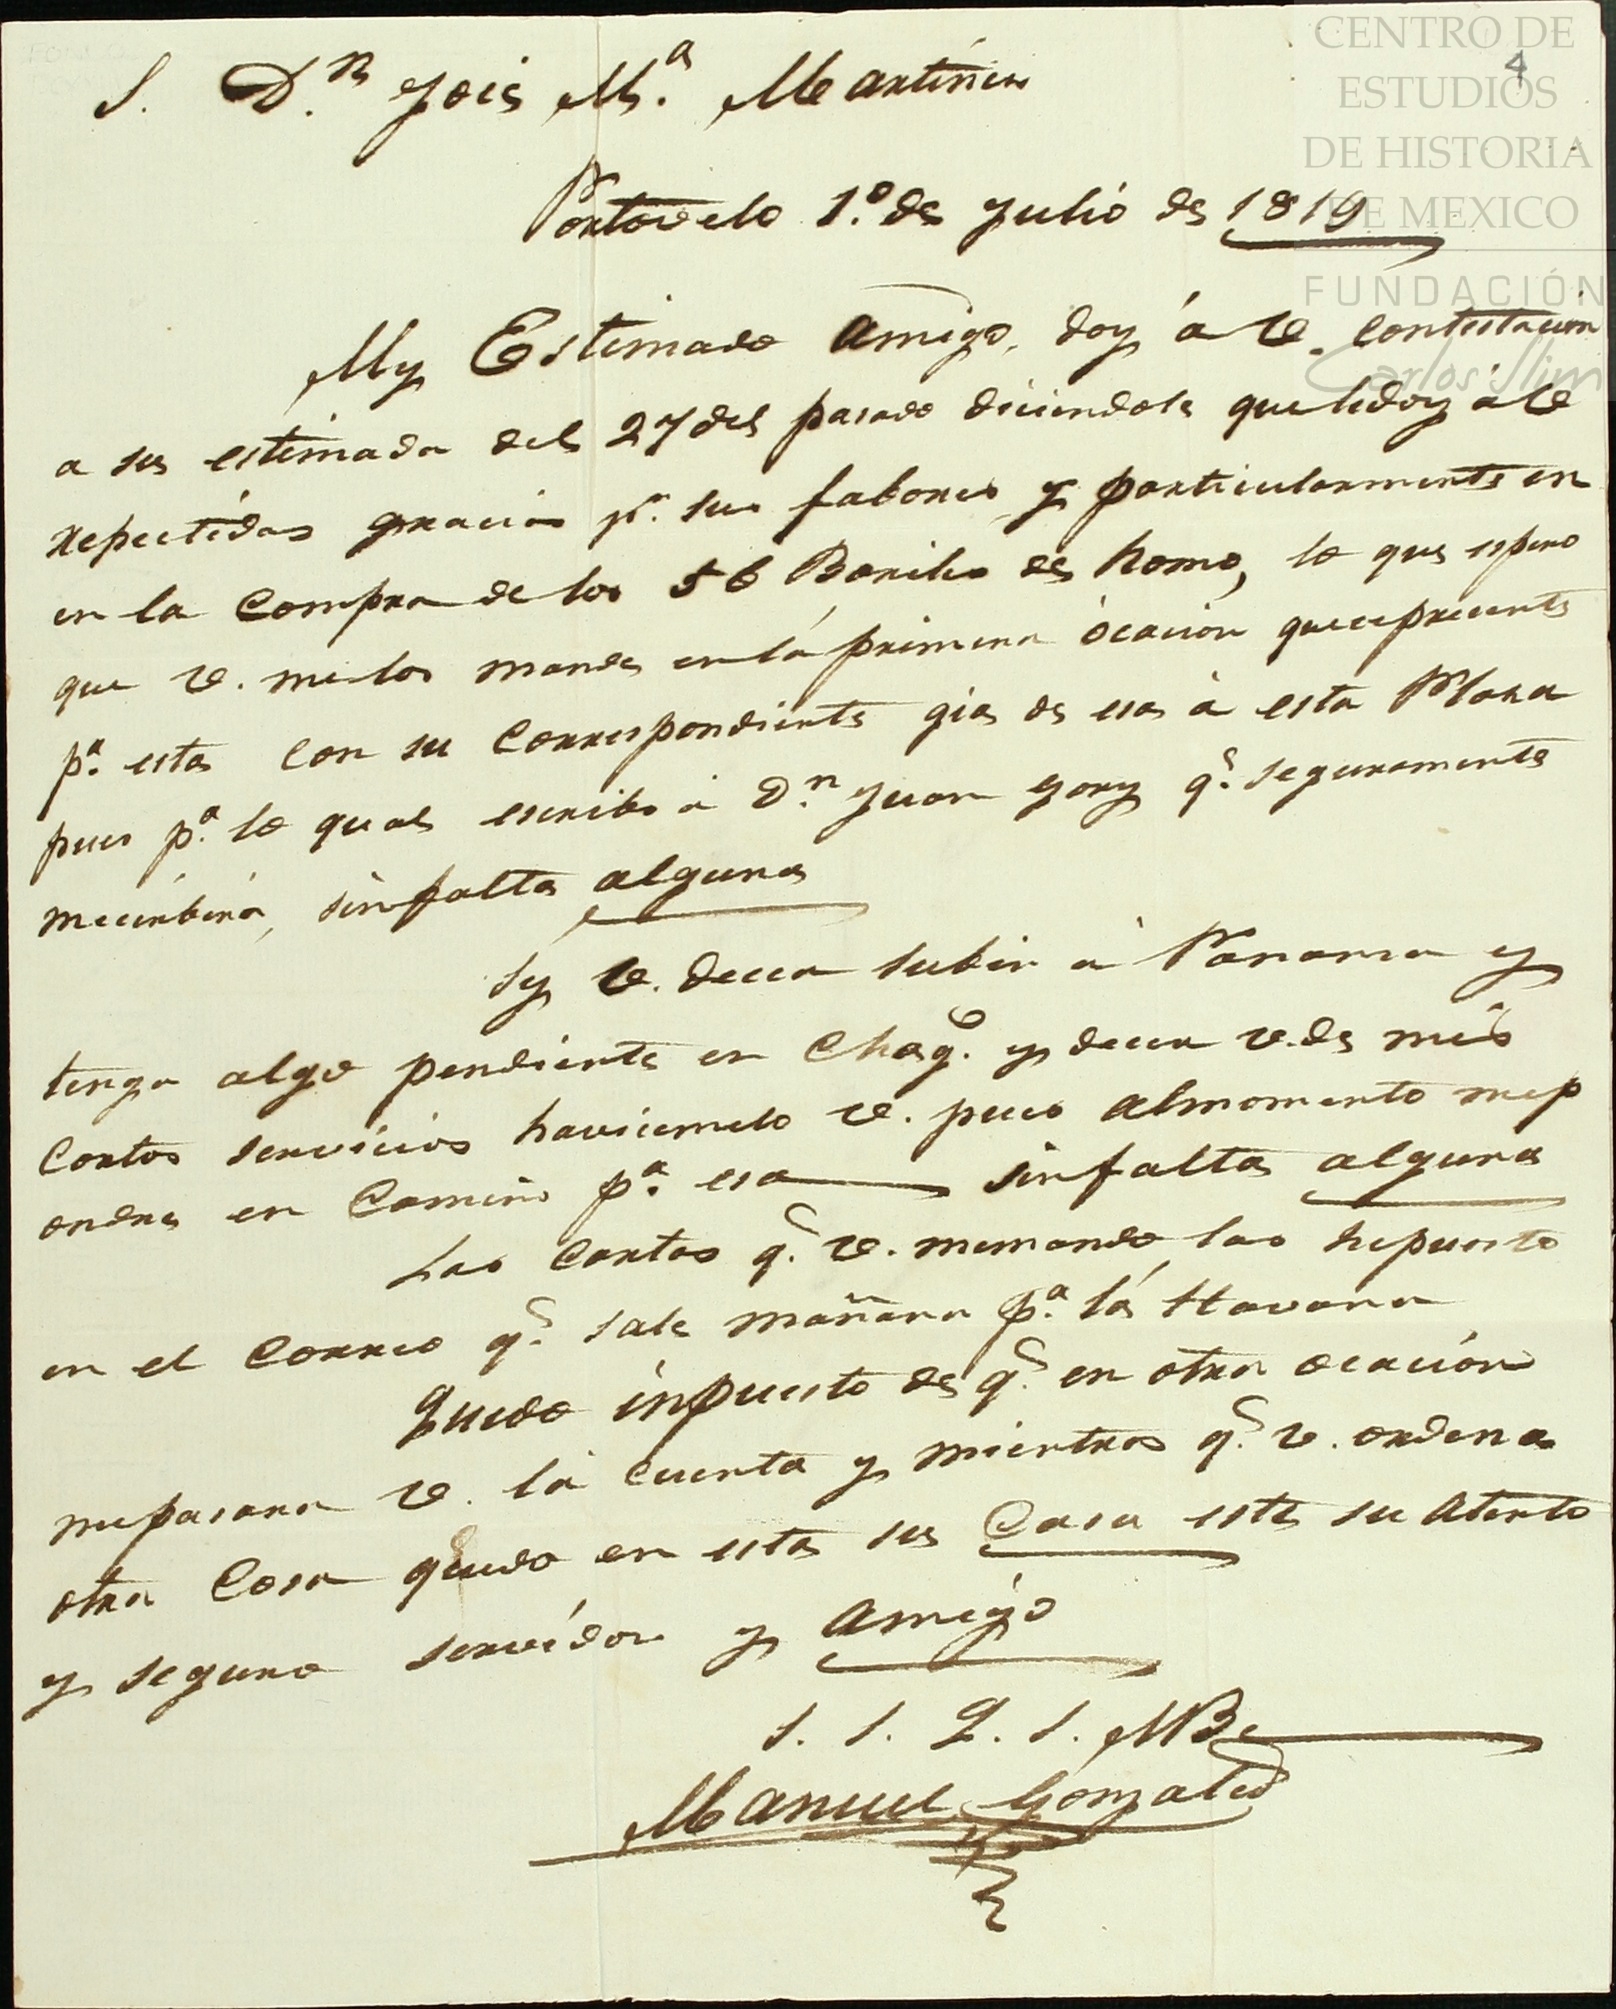 S. D.n Jose M.a Martines
4
Portovelo 1.o de Julio de 1819
My Estimado Amigo, doy á V. Contestacion
a su estimada del 27 del pasado diciendole que le doy á V
repectidas gracias p.r sus fabores y particularmente en
en la Compra de los 56 Bariles de Romo, lo que espero
que V. me los mande en lá primera ócacion que se presente
p.a esta Con su Correspondiente gia de esa á esta Plasa
pues p.a lo qual escribo á D.n Juan Gory q.e seguramente
me cirbirá, sin falta alguna
Sy V. decea subir á Panama y
tenga algo pendiente en Chag.e y decea V. de mis
Cortos servicios V. pues al momento me p
ondre en Camino p.a esa sin falta alguna
Las Cartas q.e V. me mando las he puesto
en el Correo q.e sale mañana p.a lá Havana
Quedo inpuesto de q.e en otra ocación
me pasara V. lá Cuenta y mientras q.e V. ordena
otra Cosa quedo en esta su Casa este su Atento
y seguro servidor y Amigo
S. S. Q. S. M B.
Manuel Gonzales
CENTRO DE
ESTUDIOS
DE HISTORIA
DE MEXICO
FUNDACIÓN
Carlos Slim